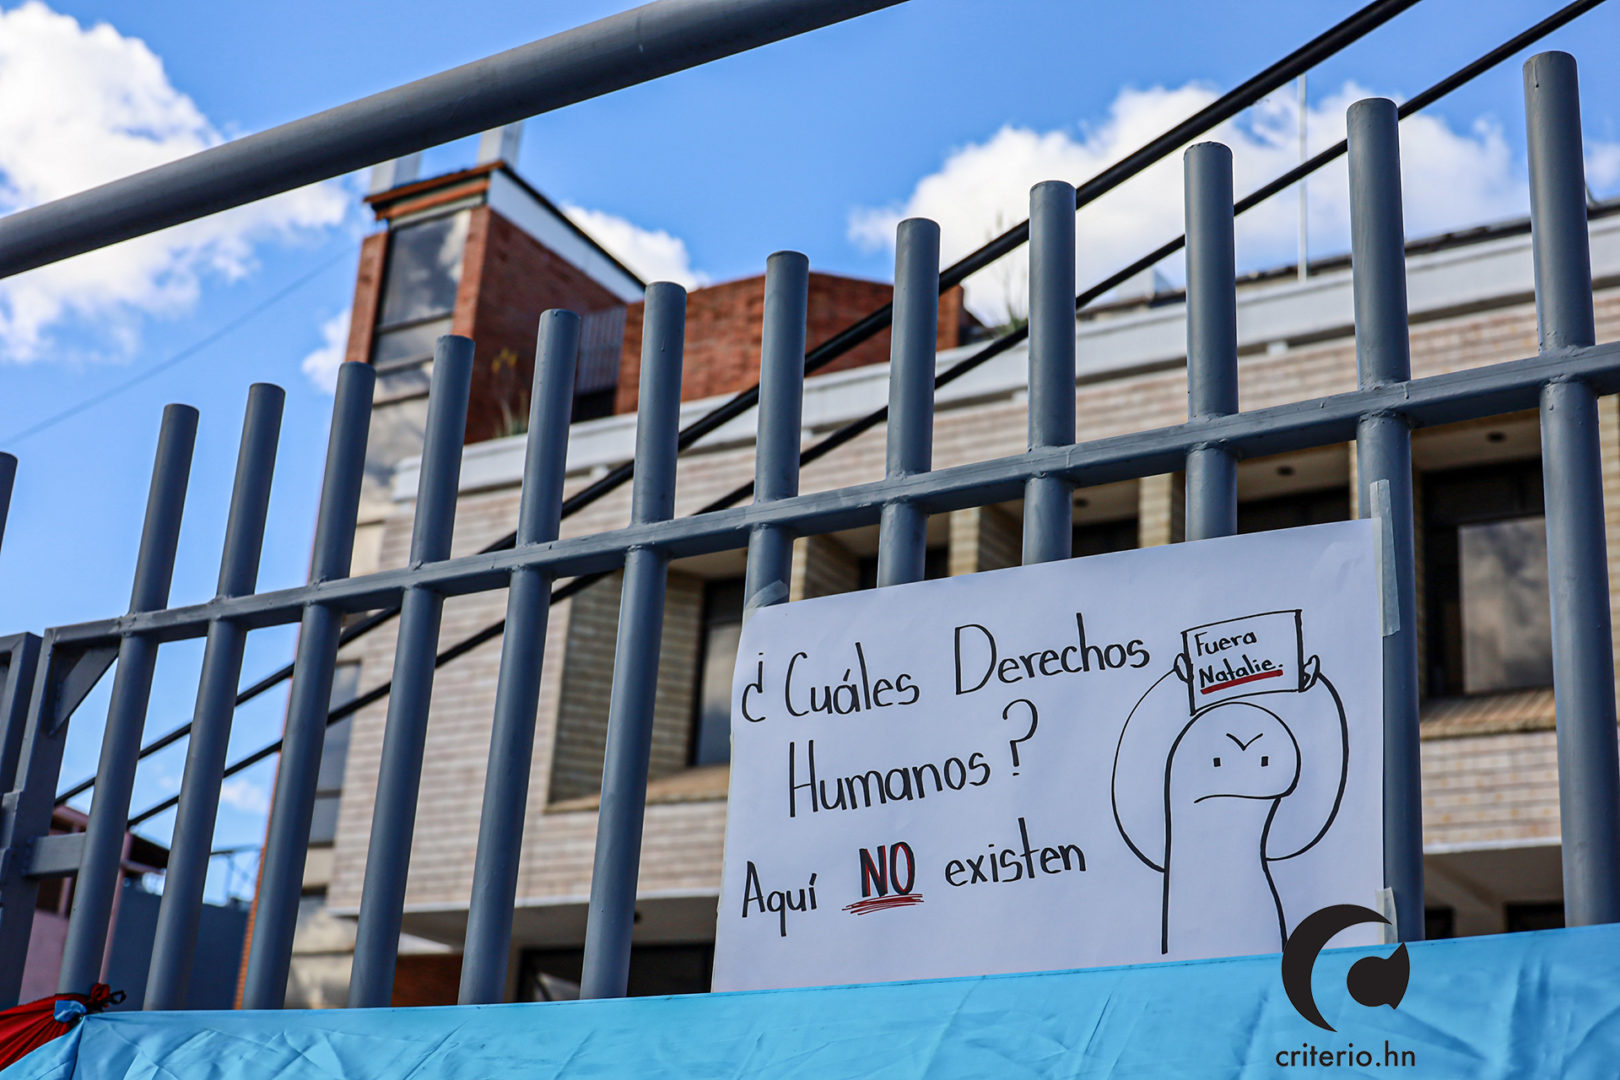 ¿Cuáles Derechos
Humanos?
Aquí NO existen
Fuera
Natalie.
criterio.hn